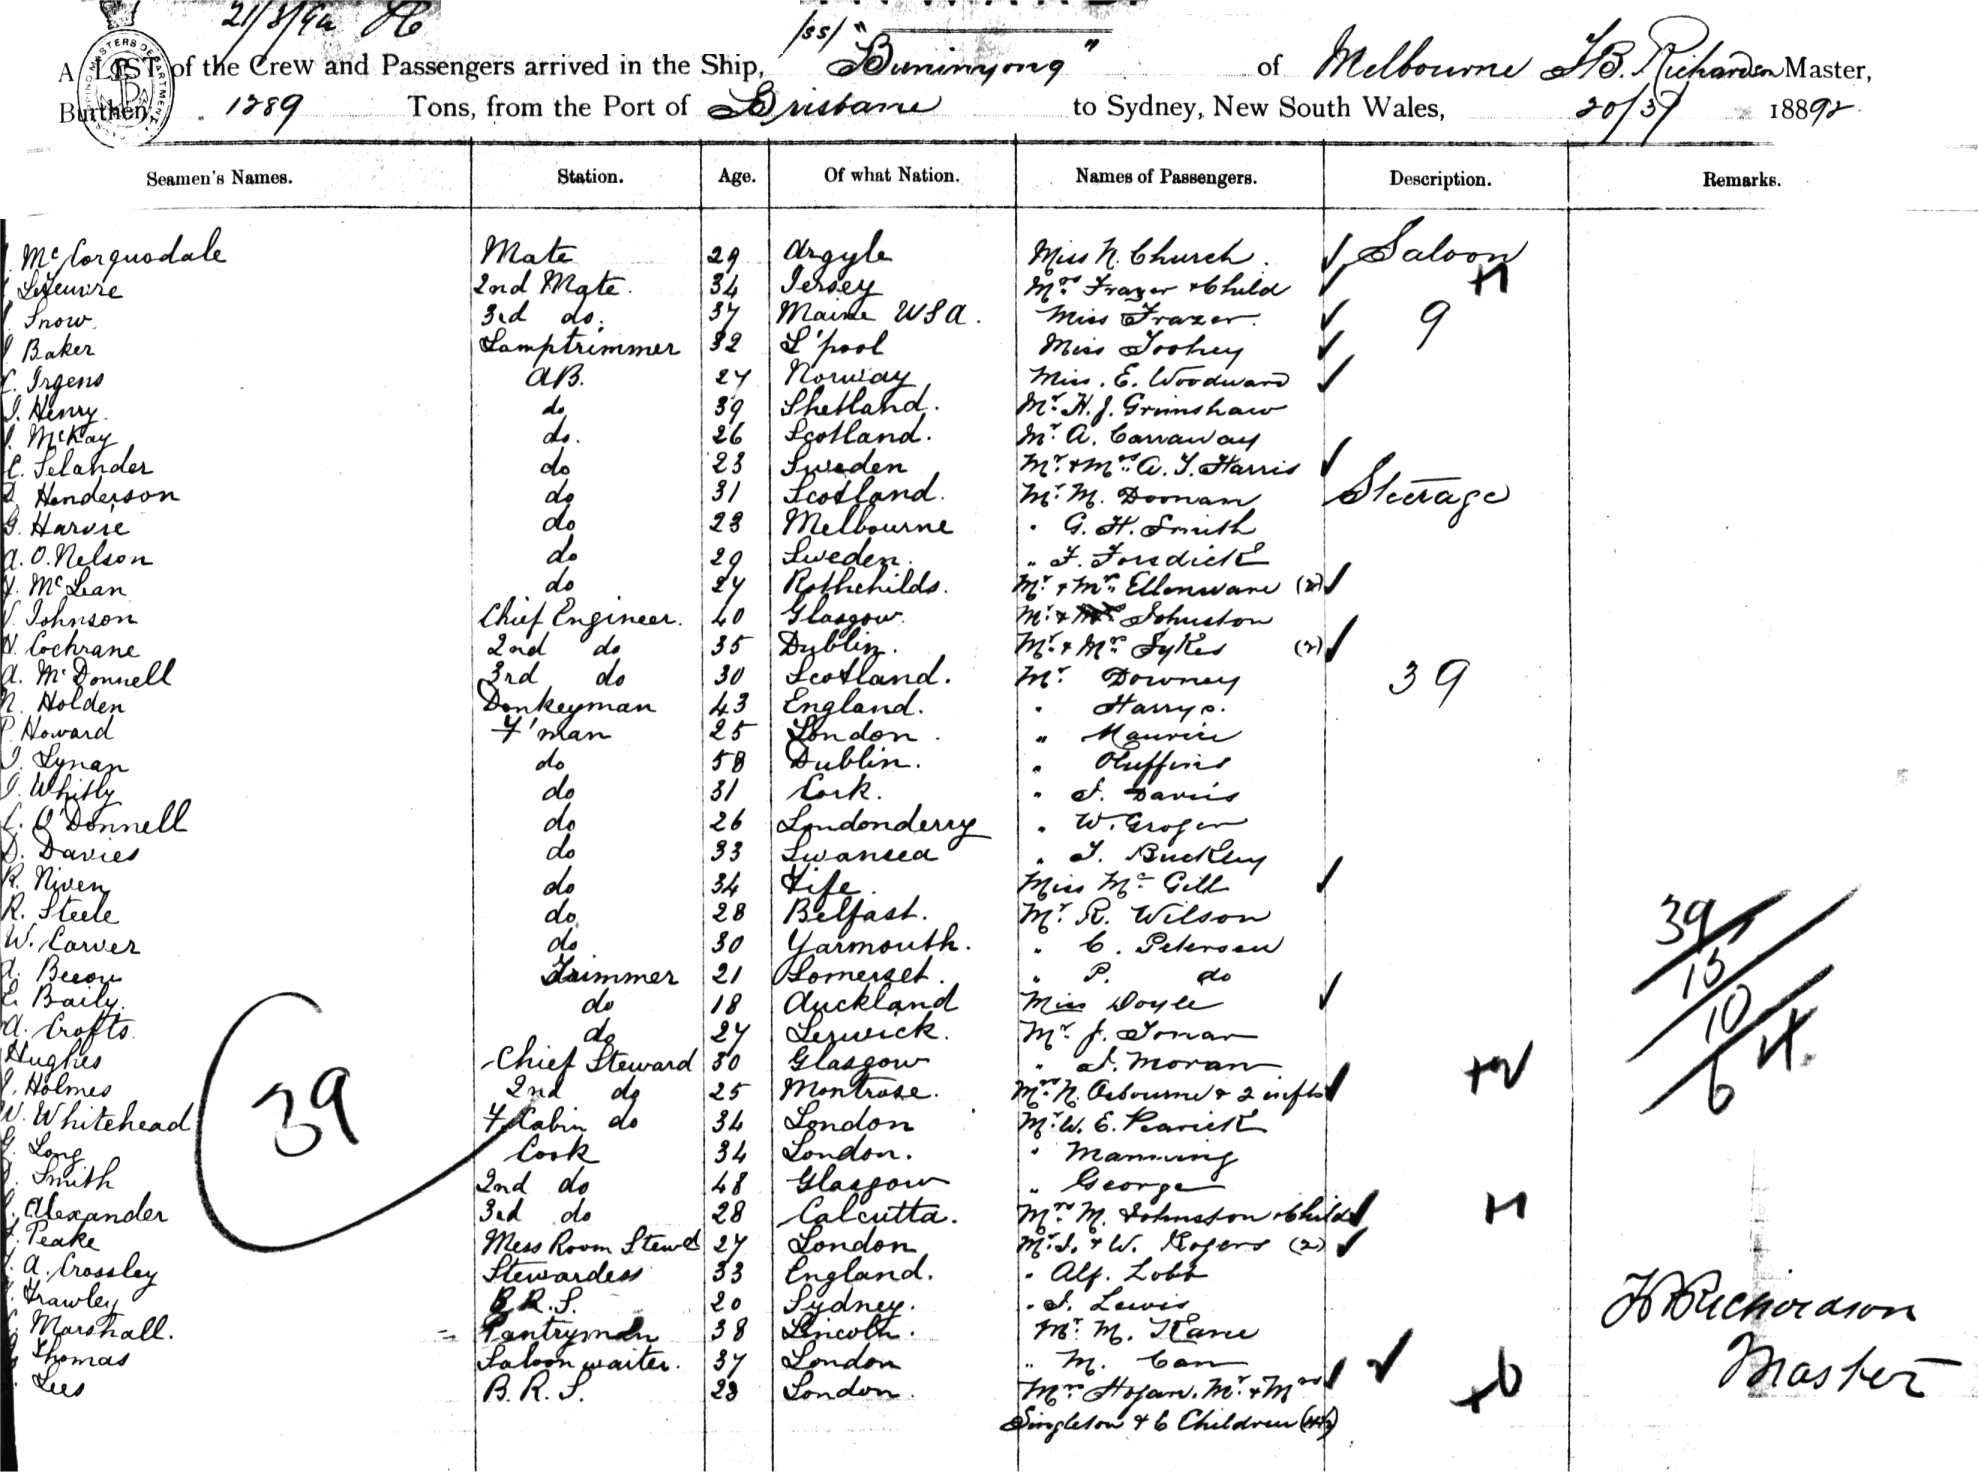 21/3/92
/ss/ "Buninyong" of Melbourne Richardson Master,
A LIST of the Crew and Passengers arrived in the Ship,
Burthen, 1289 Tons, from the Port of Brisbane to Sydney, New South Wales, 20/3/ 1892
Seamen's Names. Station. Age. Of what Nation. Names of Passengers. Description. Remarks.
McCorquodale Mate 29 Argyle Miss N. Church. ✓ Saloon
2nd Mate. 34 Jersey Mrs Frazer & Child ✓ +1
Snow 3rd do. 37 Maine USA. Miss Frazer. ✓ 9
Baker Lamptrimmer 32 L'pool Miss Toohey ✓
C. Irgens AB. 27 Norway Miss. E. Woodward ✓
J. Henry do 39 Shetland. Mr. H. J. Grimshaw
McKay do. 26 Scotland. Mr. A. Carraway
C. Selander do 23 Sweden Mr. & Mrs. A. J. Harris ✓
D. Henderson do 31 Scotland. Mr. M. Doonan Steerage
G. Harvie do 23 Melbourne " G. H. Smith
A. O. Nelson do 29 Sweden. " F. Fosdick
McLean do 27 Rothchilds. Mr. & Mrs. Ellenware (2) ✓
Johnson Chief Engineer. 40 Glasgow. Mr. & Johnston
H. Cochrane 2nd do 35 Dublin. Mr. & Mrs Sykes (2) ✓
A. McDonnell 3rd do 30 Scotland. Mr. Downey 39
N. Holden Donkeyman 43 England. " Harrys.
P. Howard F'man 25 London. " Maurice
J. Lynan do 58 Dublin. "
J. Whitly do 31 Cork. " J. Davis
O'Donnell do 26 Londonderry " W. Grogan
D. Davies do 33 Swansea " J. Buckley
R. Niven do 34 Fife. Miss McGill ✓
R. Steele do 28 Belfast. Mr. R. Wilson 39/
W. Carver do 30 Yarmouth. " C. Petersen 15/
Trimmer 21 Somerset. " P. do
Baily. do 18 Auckland Miss Doyle ✓ 10/
A. Crofts do 27 Lerwick. Mr. J. Tonar
Hughes Chief Steward 30 Glasgow " J. Moran +2 6
Holmes 2nd do 25 Montrose. Mrs. N. Osbourne & 2 infts ✓
W. Whitehead F. Cabin do 34 London Mr. W. E. Pearick
39
G. Long Cook 34 London. " Manning
Smith 2nd do 48 Glasgow " George
Alexander 3rd do 28 Calcutta. Mrs. M. Johnston & Child ✓ +1
Peake Mess Room Stewd 27 London Mr. J. & W. Rogers (2) ✓
A. Crossley Stewardess 33 England. " Alf. Lobb
Frawley B.R.S. 20 Sydney. " J. Lewis
Marshall. Pantryman 38 Lincoln. Mr. M. Kane
Richardson
Thomas Saloon waiter. 37 London " M. Carr ✓
Master
Lees B.R.S. 23 London. Mrs. Hogan, Mr. & Mrs ✓ +6
Singleton & 6 Children